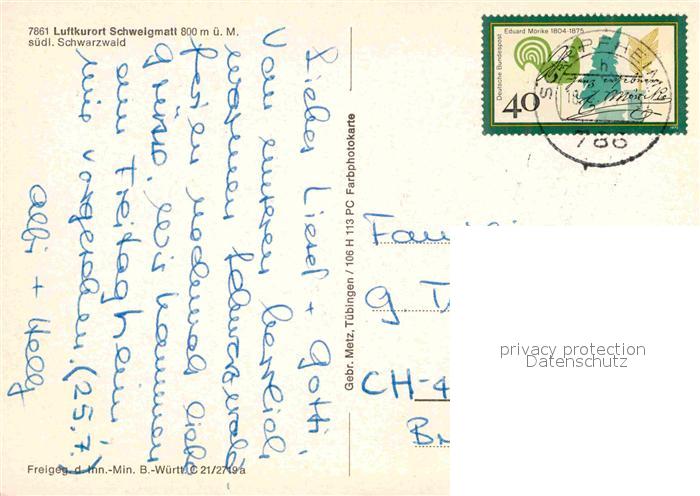 7861 Luftkurort Schweigmatt 800 m ü. M.
südl. Schwarzwald
Liebes Liesel + Gotti,
Von unseren herrlich
warmen Schwarzwald
ferien nochmal liebe
Grüsse, wir kommen
am Freitag heim
wie vorgesehen. (25.7.)
+ Welly
Freigeg. d. Inn.-Min. B.-Württ. C 21/2719 a
Gebr. Metz, Tübingen / 106 H 113 PC Farbphotokarte
Deutsche Bundespost
Eduard Mörike 1804-1875
40
786
Fam
g
CH-4
privacy protection
Datenschutz